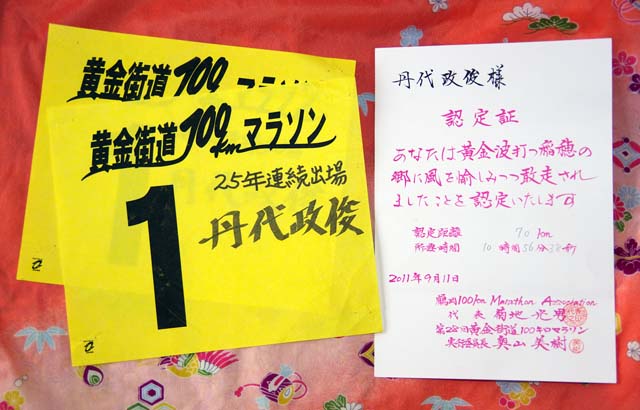 黄金街道100
マラソン
黄金街道100kmマラソン
25年連続出場
1
丹代政俊
丹代政俊様
認定証
あなたは黄金波打つ稲穂の
郷に風を愉しみつつ敢走され
ましたことを認定いたします
認定距離 70km
所要時間 10時間56分38秒
2011年9月11日
鶴田100km Marathon Association
代表 菊地
第28回黄金街道100キロマラソン
実行委員長 奥山英樹